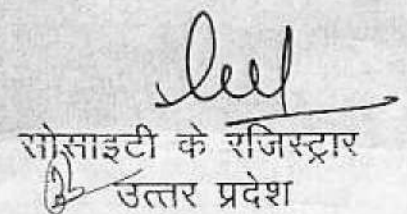 सोसाइटी के रजिस्ट्रार
उत्तर प्रदेश